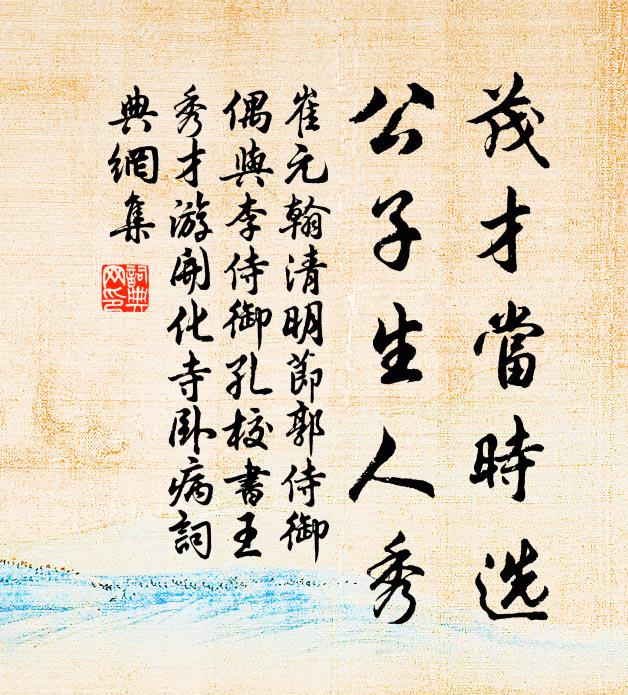 茂才當時选
公子生人秀
崔元翰清明節郭侍御
偶與李侍御孔校書王
秀才游開化寺卧病詞
典網集
詞典网印